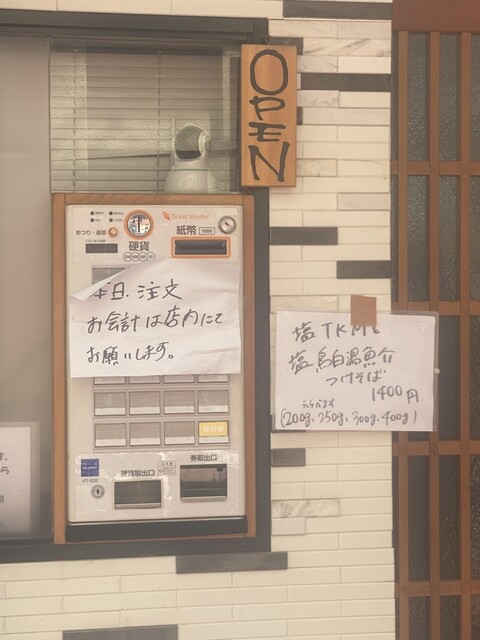 OPEN
Ticket Vender
おつり・返却
硬貨
紙幣
本日、注文
お会計は店内にて
お願いします。
塩TKMと
塩鳥白湯魚介
つけそば
1400円
えらべます
(200g、250g、300g、400g)
硬貨取出口
券取出口
VT-B20